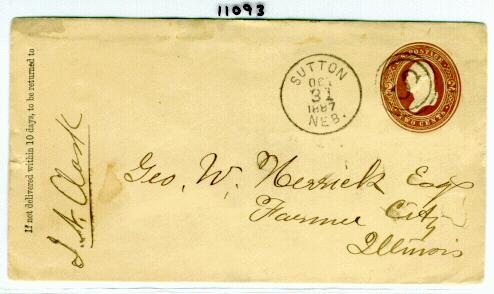 11093
If not delivered within 10 days, to be returned to
J. N. Clark
SUTTON
OCT
31
1887
NEB.
U.S. POSTAGE
TWO CENTS
2
Geo. W. Herrick Esq
Farmer City
Illinois